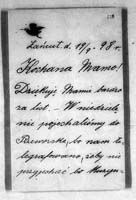 Łańcut d. 19/9. 98 r.
Kochana Mamo!
Dziękuję Mamie bardzo
za list. – W niedzielę
nie pojechaliśmy do
bo nam te-
legrafowano, żeby nie
przyjechać bo